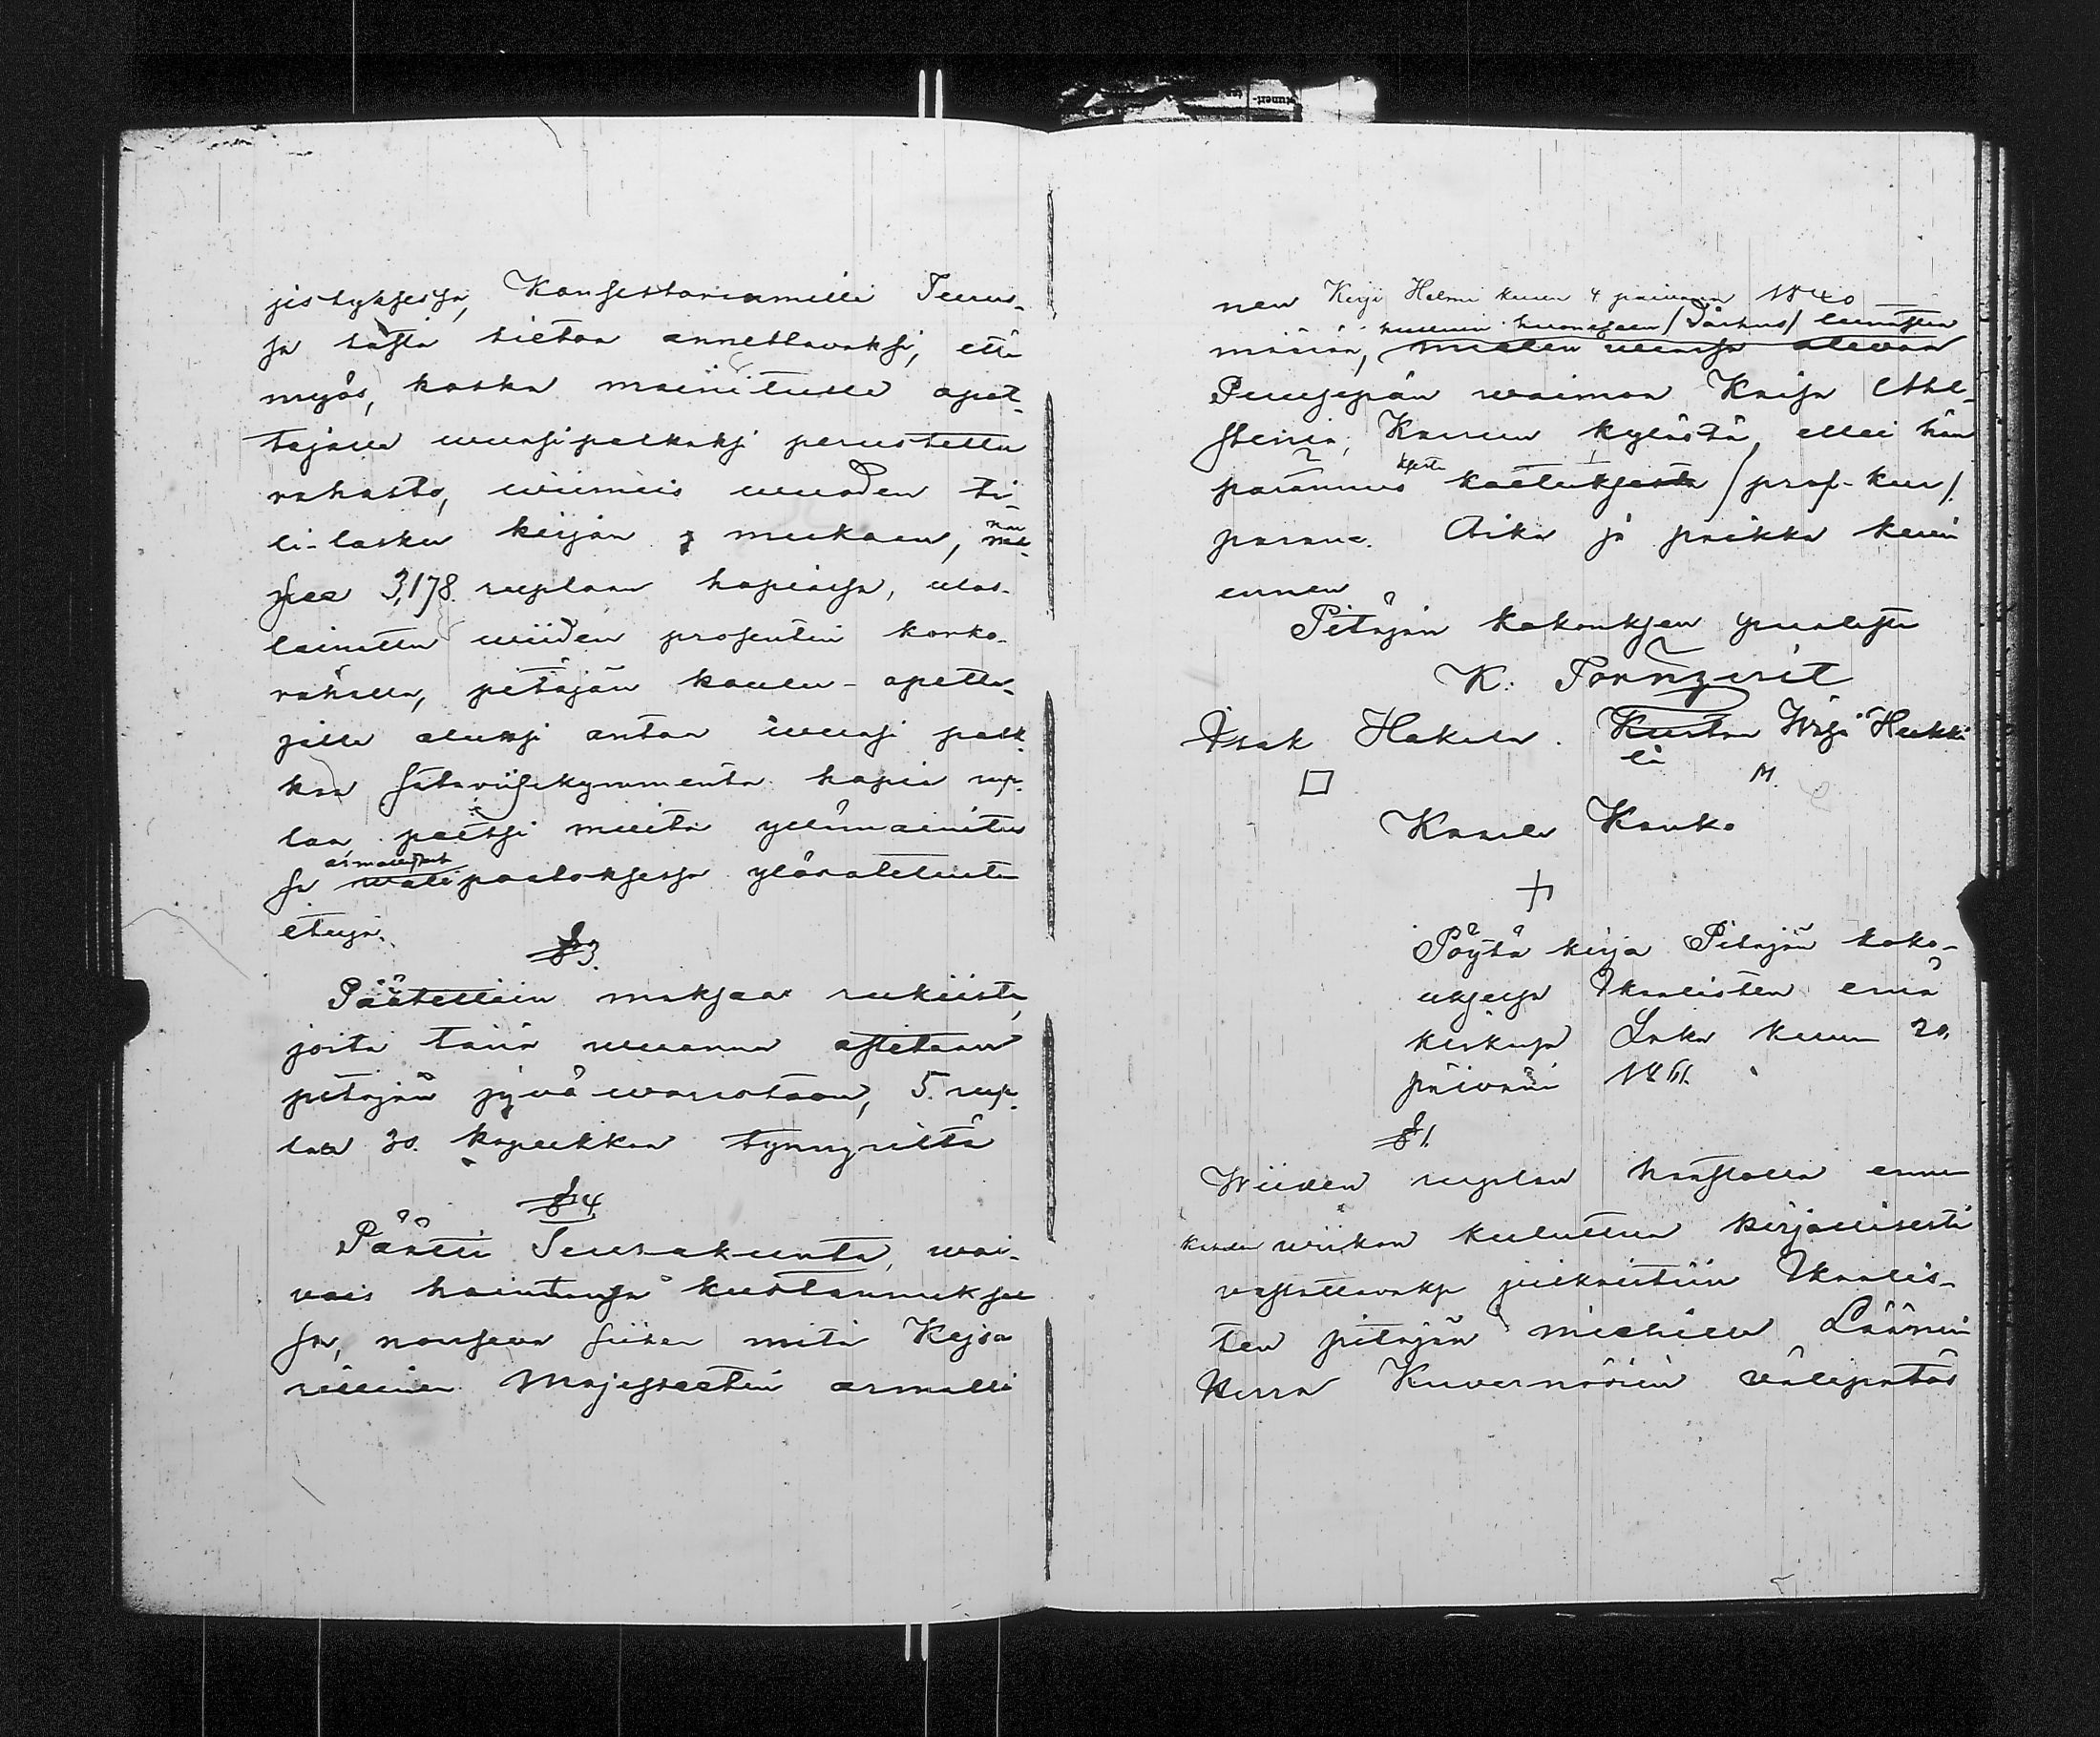 jistyksesjä, Konsistoriamille Turus-
sa tästä tietoa annettavaksi, että
myös, koska mainitulle opet-
tajalle vuosipalkaksi perustettu
rahasto, viimeis vuoden ti-
li-lasku kirjan mukaan, nou
see 3,178. ruplaan hopiassa, ulos-
lainattu viiden prosentin korko-
rahalla, pitäjän koulu-opetta-
jalle aluksi antaa vuosi palk-
kaa sataviisikymmentä hopia rup-
laa, paitsi muita yllämainitus
sa armollisesa päätöksessä ylösateluita
etuja.
§3.
Päätettiin maksaa rukiista,
joita tänä vuonna astetaan
pitäjän jyvä warastoon, 5. rup-
laa 30. kopeekkaa tynnyriltä
§4.
Päätti Seurakunta, wai-
vais hoindonsa kustannukses
sa, nouseva siihen mitä Kejsa
rillinen Majesteetin armolli
nen Kirja Helmi kuun 4 päivänä 1840
määrää, huoneseen / Dårhus / lunastaa
Puusepän vaimoa Kaisa Ahl-
steniä, Kauun kylästä, ellei hän
parannus kaetuksesta / prof-kur /
parane. Aika ja paikka kuin
ennen
Pitäjän kokouksen puolesta
K: Törnqvist
Isak Hakula. Kustaa Wäjä Heikki
lä
M.
Kaarle Kauko
+
Pöytä kirja Pitäjän koko-
uksesa Ikaalisten emä
kirkosa Loka kuun 20.
päivänä 1861.
§1.
Wiiden ruplan haastolla ennen
kahden wiikon kuluttua kirjallisesti
vastattavaksi julkaistiin Ikaalis-
ten pitäjän miehille Läänin
Herra Kuvernöörin välipäätös